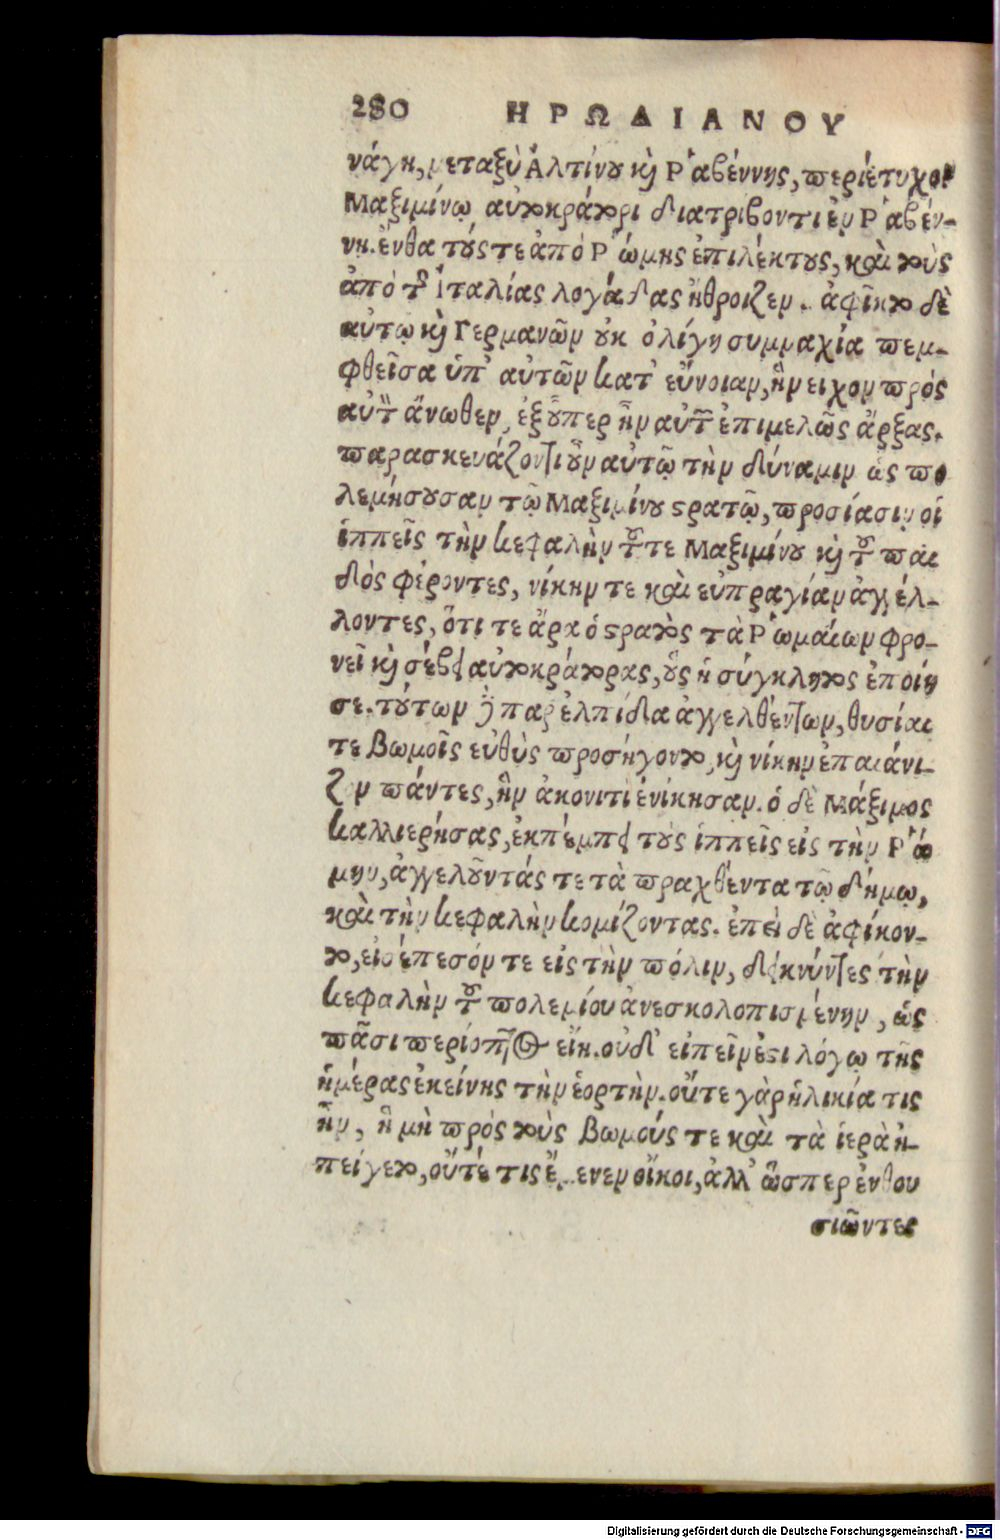 280 ΗΡΩΔΙΑΝΟΥ
νάγη, μεταξὺ Ἀλτίνου καὶ Ῥαβέννης, περιέτυχον
Μαξιμίνῳ αὐτοκράτορι διατρίβοντι ἐν Ῥαβέν-
νῃ. ἔνθα τούς τε ἀπό Ῥώμης ἐπιλέκτους, καὶ τοὺς
ἀπό τῆς Ἰταλίας λογάδας ἤθροιζεν. ἀφῖκτο δὲ
αὐτῳ καὶ Γερμανῶν οὐκ ὀλίγη συμμαχία πεμ-
φθεῖσα ὑπ' αὐτῶν κατ' εὔνοιαν, ἣν ειχον πρός
αὐτὸν ἄνωθεν, ἐξ οὗπερ ἦν αὐτῶν ἐπιμελῶς ἄρξας.
παρασκευάζοντι οὖν αὐτῷ τὴν δύναμιν ὡς πο
λεμήσουσαν τῷ Μαξιμίνου στρατῷ, προσίασιν οἱ
ἱππεῖς τὴν κεφαλὴν τοῦ τε Μαξιμίνου καὶ τοῦ παι
δὸς φέροντες, νίκην τε καὶ εὐπραγίαν ἀγγέλ-
λοντες, ὅτι τε ἄρα ὁ στρατὸς τὰ Ῥωμαίων φρο-
νεῖ καὶ σέβει αὐτοκράτορας, οὓς ἡ σύγκλητος ἐποίη
σε. τούτων δὲ παρ' ἐλπίδα ἀγγελθέντων, θυσίαι
τε βωμοῖς εὐθὺς προσήγοντο, καὶ νίκην ἐπαιάνι-
ζον πάντες, ἣν ἀκονιτὶ ἐνίκησαν. ὁ δὲ Μάξιμος
καλλιερήσας, ἐκπέμπει τοὺς ἱππεῖς εἰς τὴν Ῥώ
μην, ἀγγελοῦντάς τε τὰ πραχθέντα τῷ δήμῳ,
καὶ τὴν κεφαλὴν κομίζοντας. ἐπεὶ δὲ ἀφίκον-
το, εἰσέπεσόν τε εἰς τὴν πόλιν, δεικνύντες τὴν
κεφαλὴν τοῦ πολεμίου ἀνεσκολοπισμένην, ὡς
πᾶσι περίοπτος εἴη. οὐδ' εἰπεῖν ἔστι λόγῳ τῆς
ἡμέρας ἐκείνης τὴν ἑορτήν. οὔτε γὰρ ἡλικία τις
ἦν, ἣ μὴ πρός τοὺς βωμούς τε καὶ τὰ ἱερὰ ἠ-
πείγετο, οὔτέ τις ἔμενεν οἴκοι, ἀλλ' ὥσπερ ἐνθου
σιῶντες
Digitalisierung gefördert durch die Deutsche Forschungsgemeinschaft - DFG